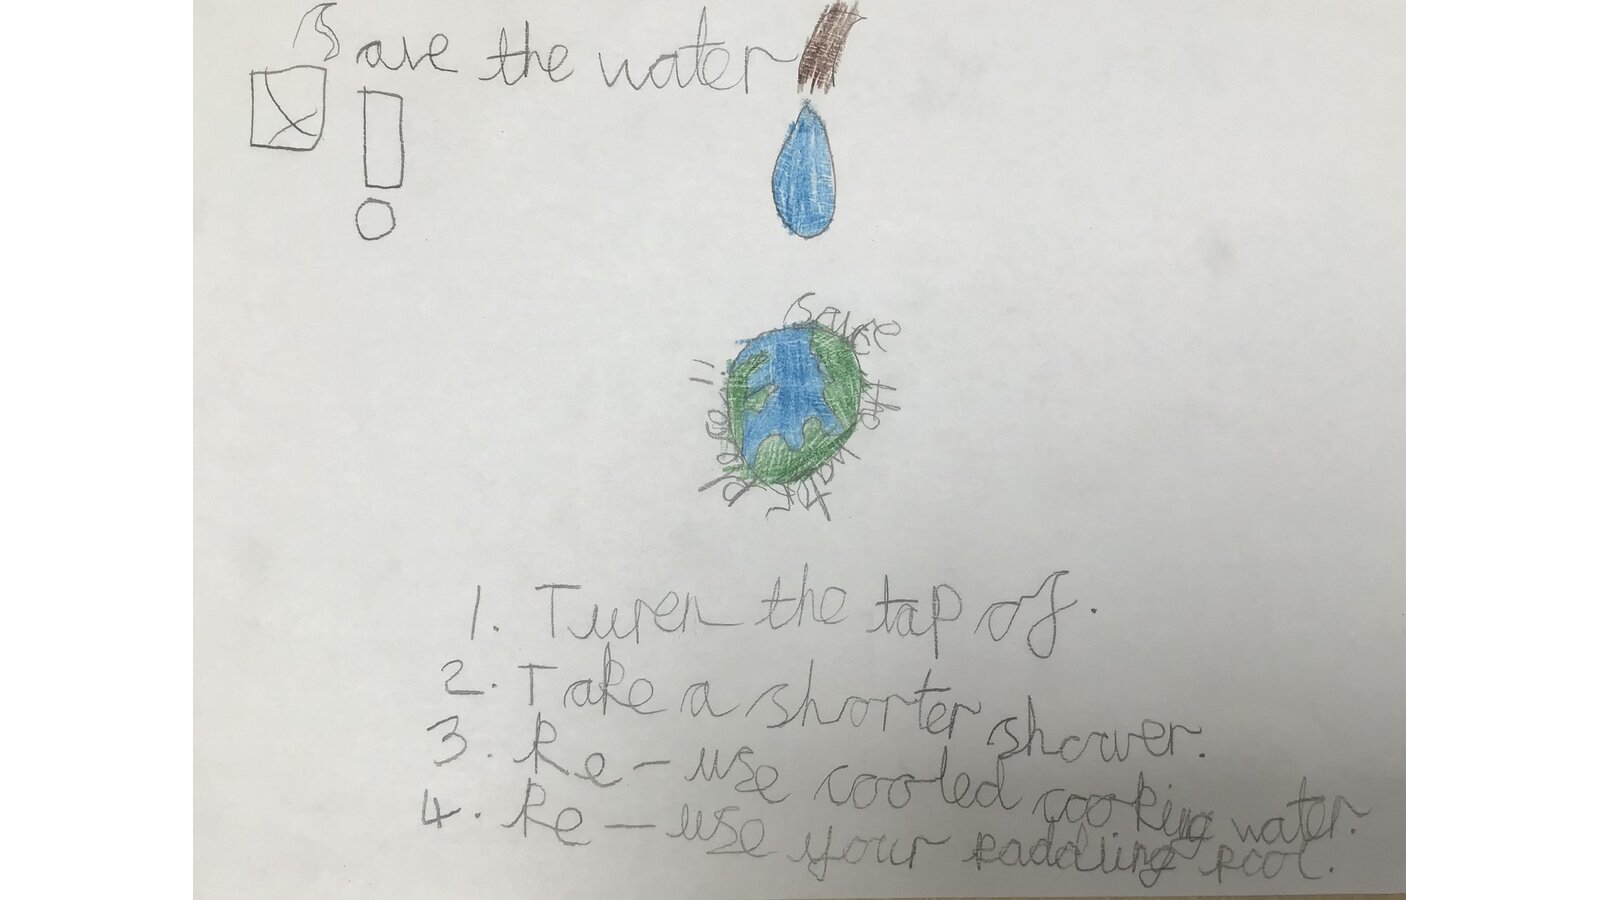 Save the water
!
Save
1. Turen the tap of.
2. Take a shorter shower.
3. Re-use cooled cooking water.
4. Re-use your paddling pool.